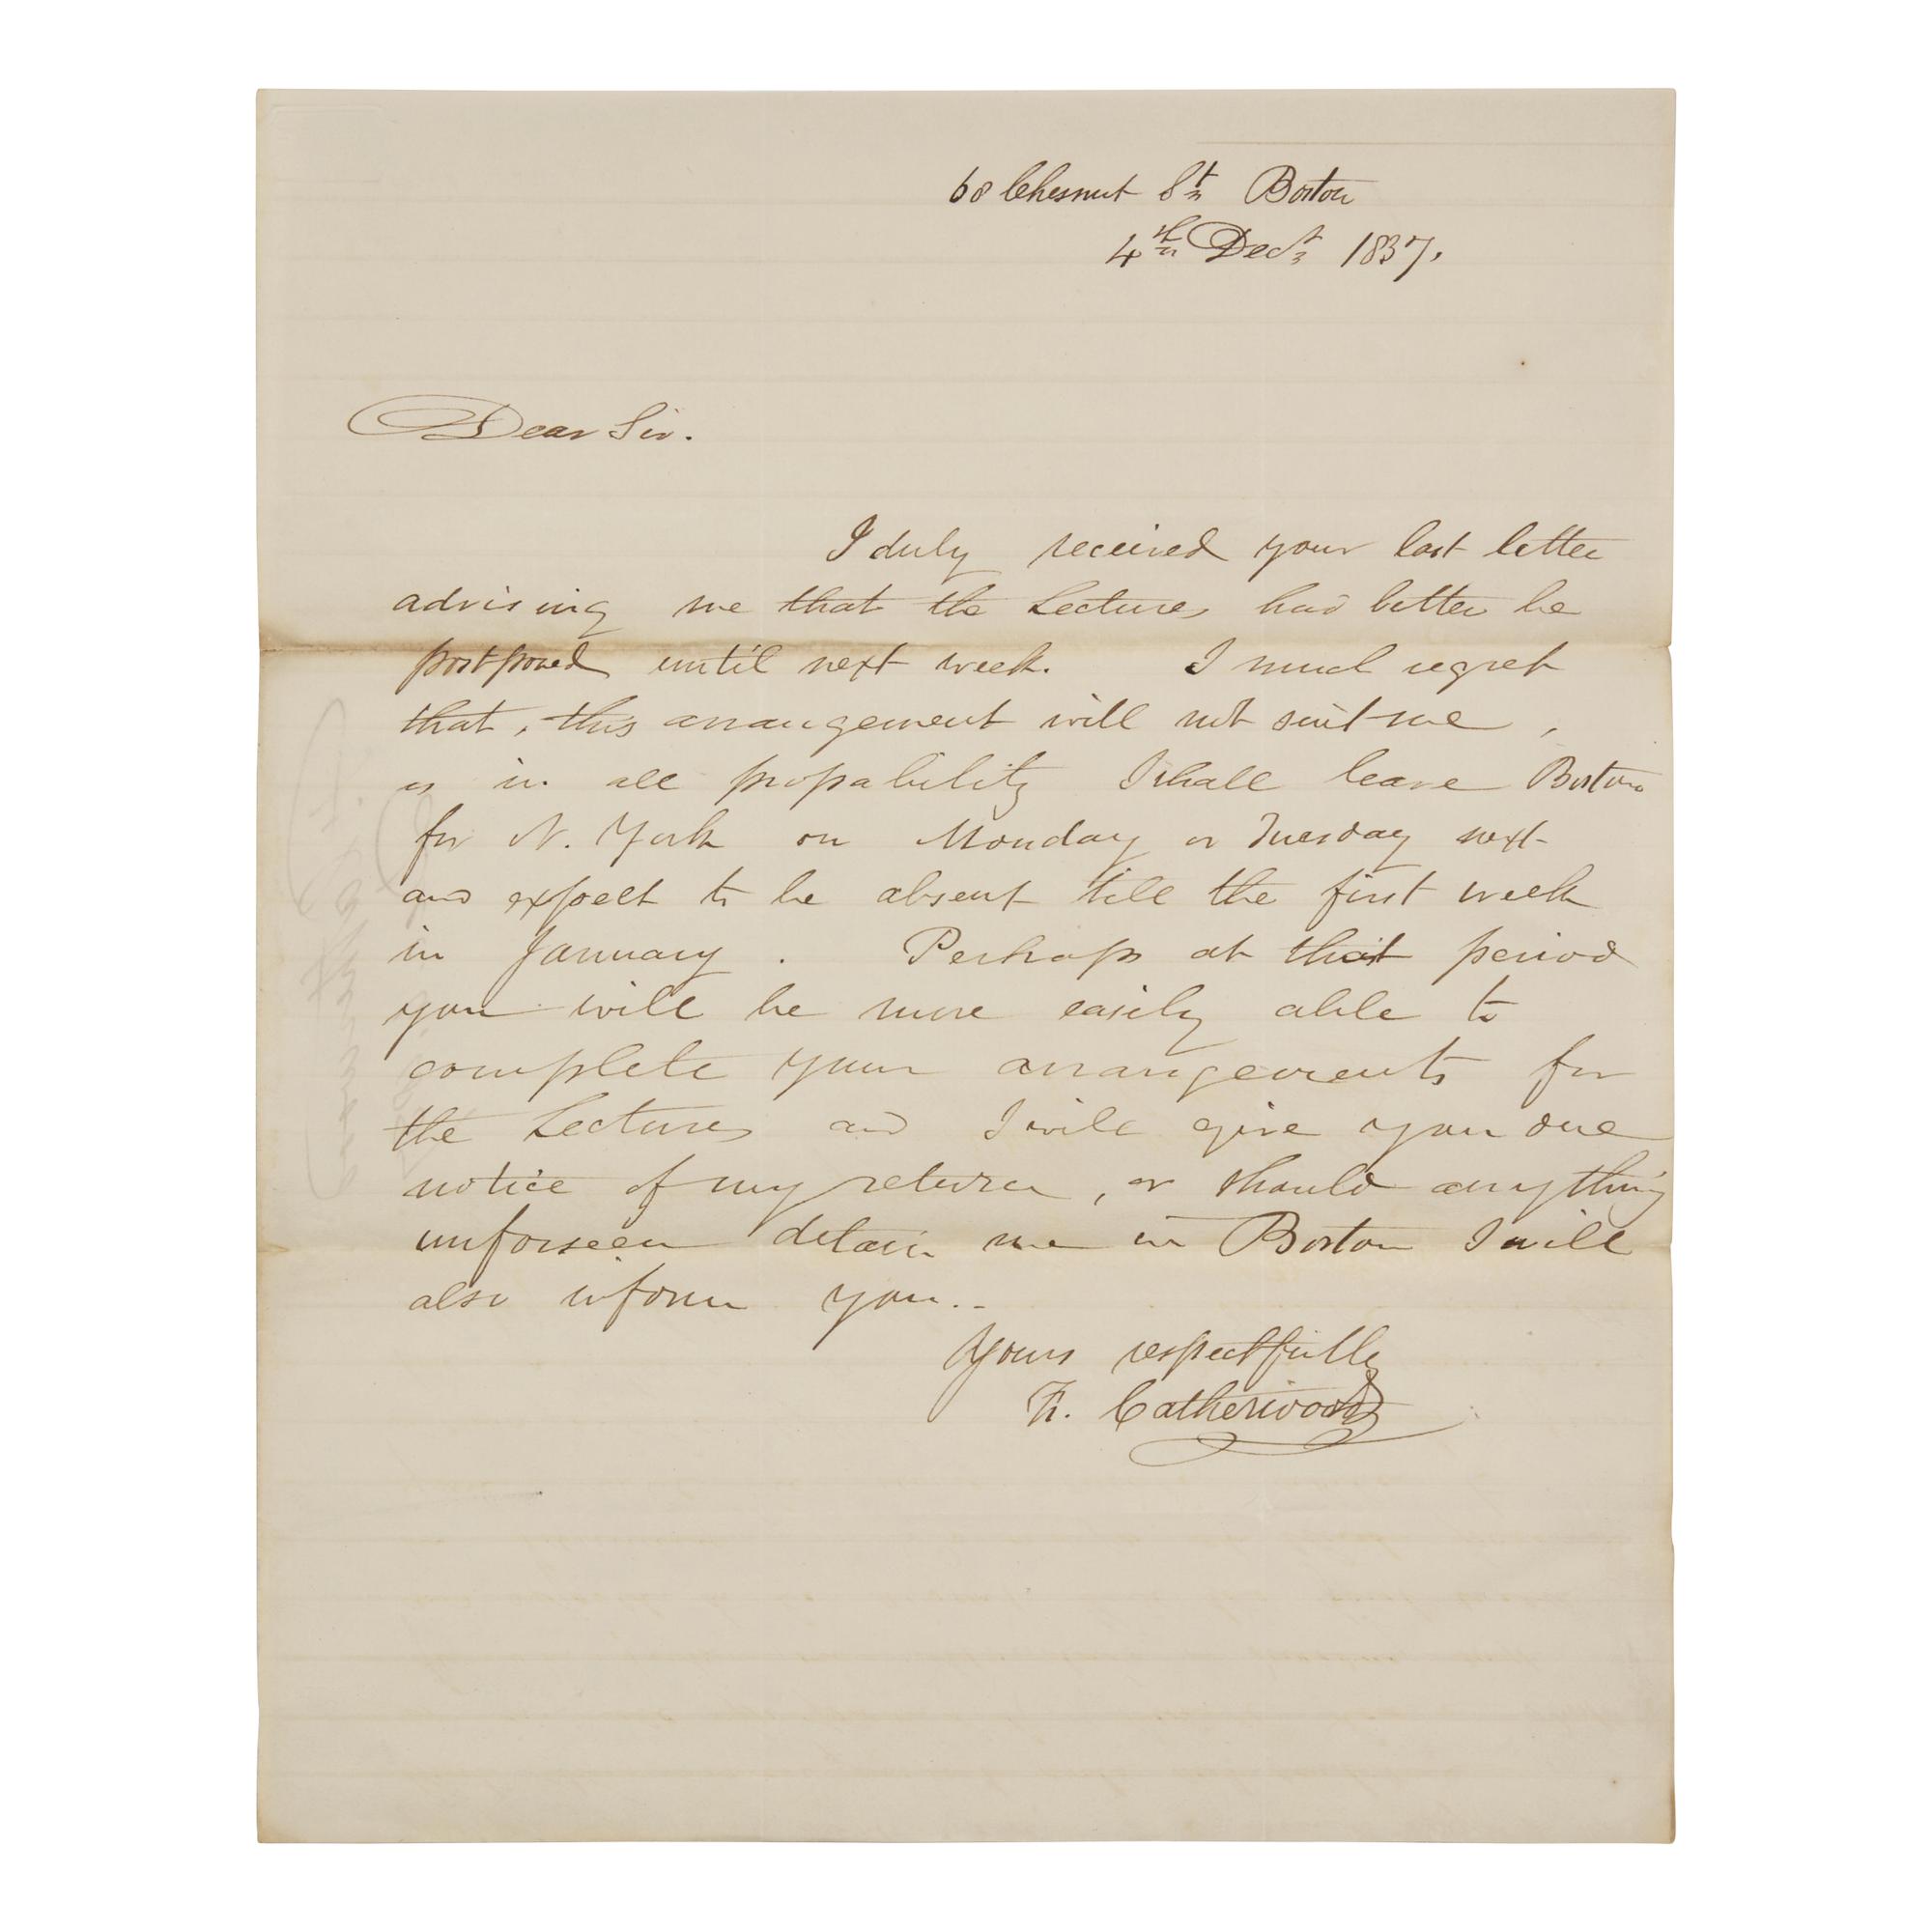 68 Chesnut St Boston
4th Decr 1837.
Dear Sir.
I duly received your last letter
advising me that the Lectures had better be
postponed until next week. I much regret
that, this arrangement will not suit me,
as in all propability I shall leave Boston
for N. York on Monday or Tuesday next
and expect to be absent till the first week
in January. Perhaps at that period
you will be more easily able to
complete your arrangements for
the Lectures and I will give you due
notice of my return, or should anything
unforseen detain me in Boston I will
also inform you..
Yours respectfully
F. Catherwood